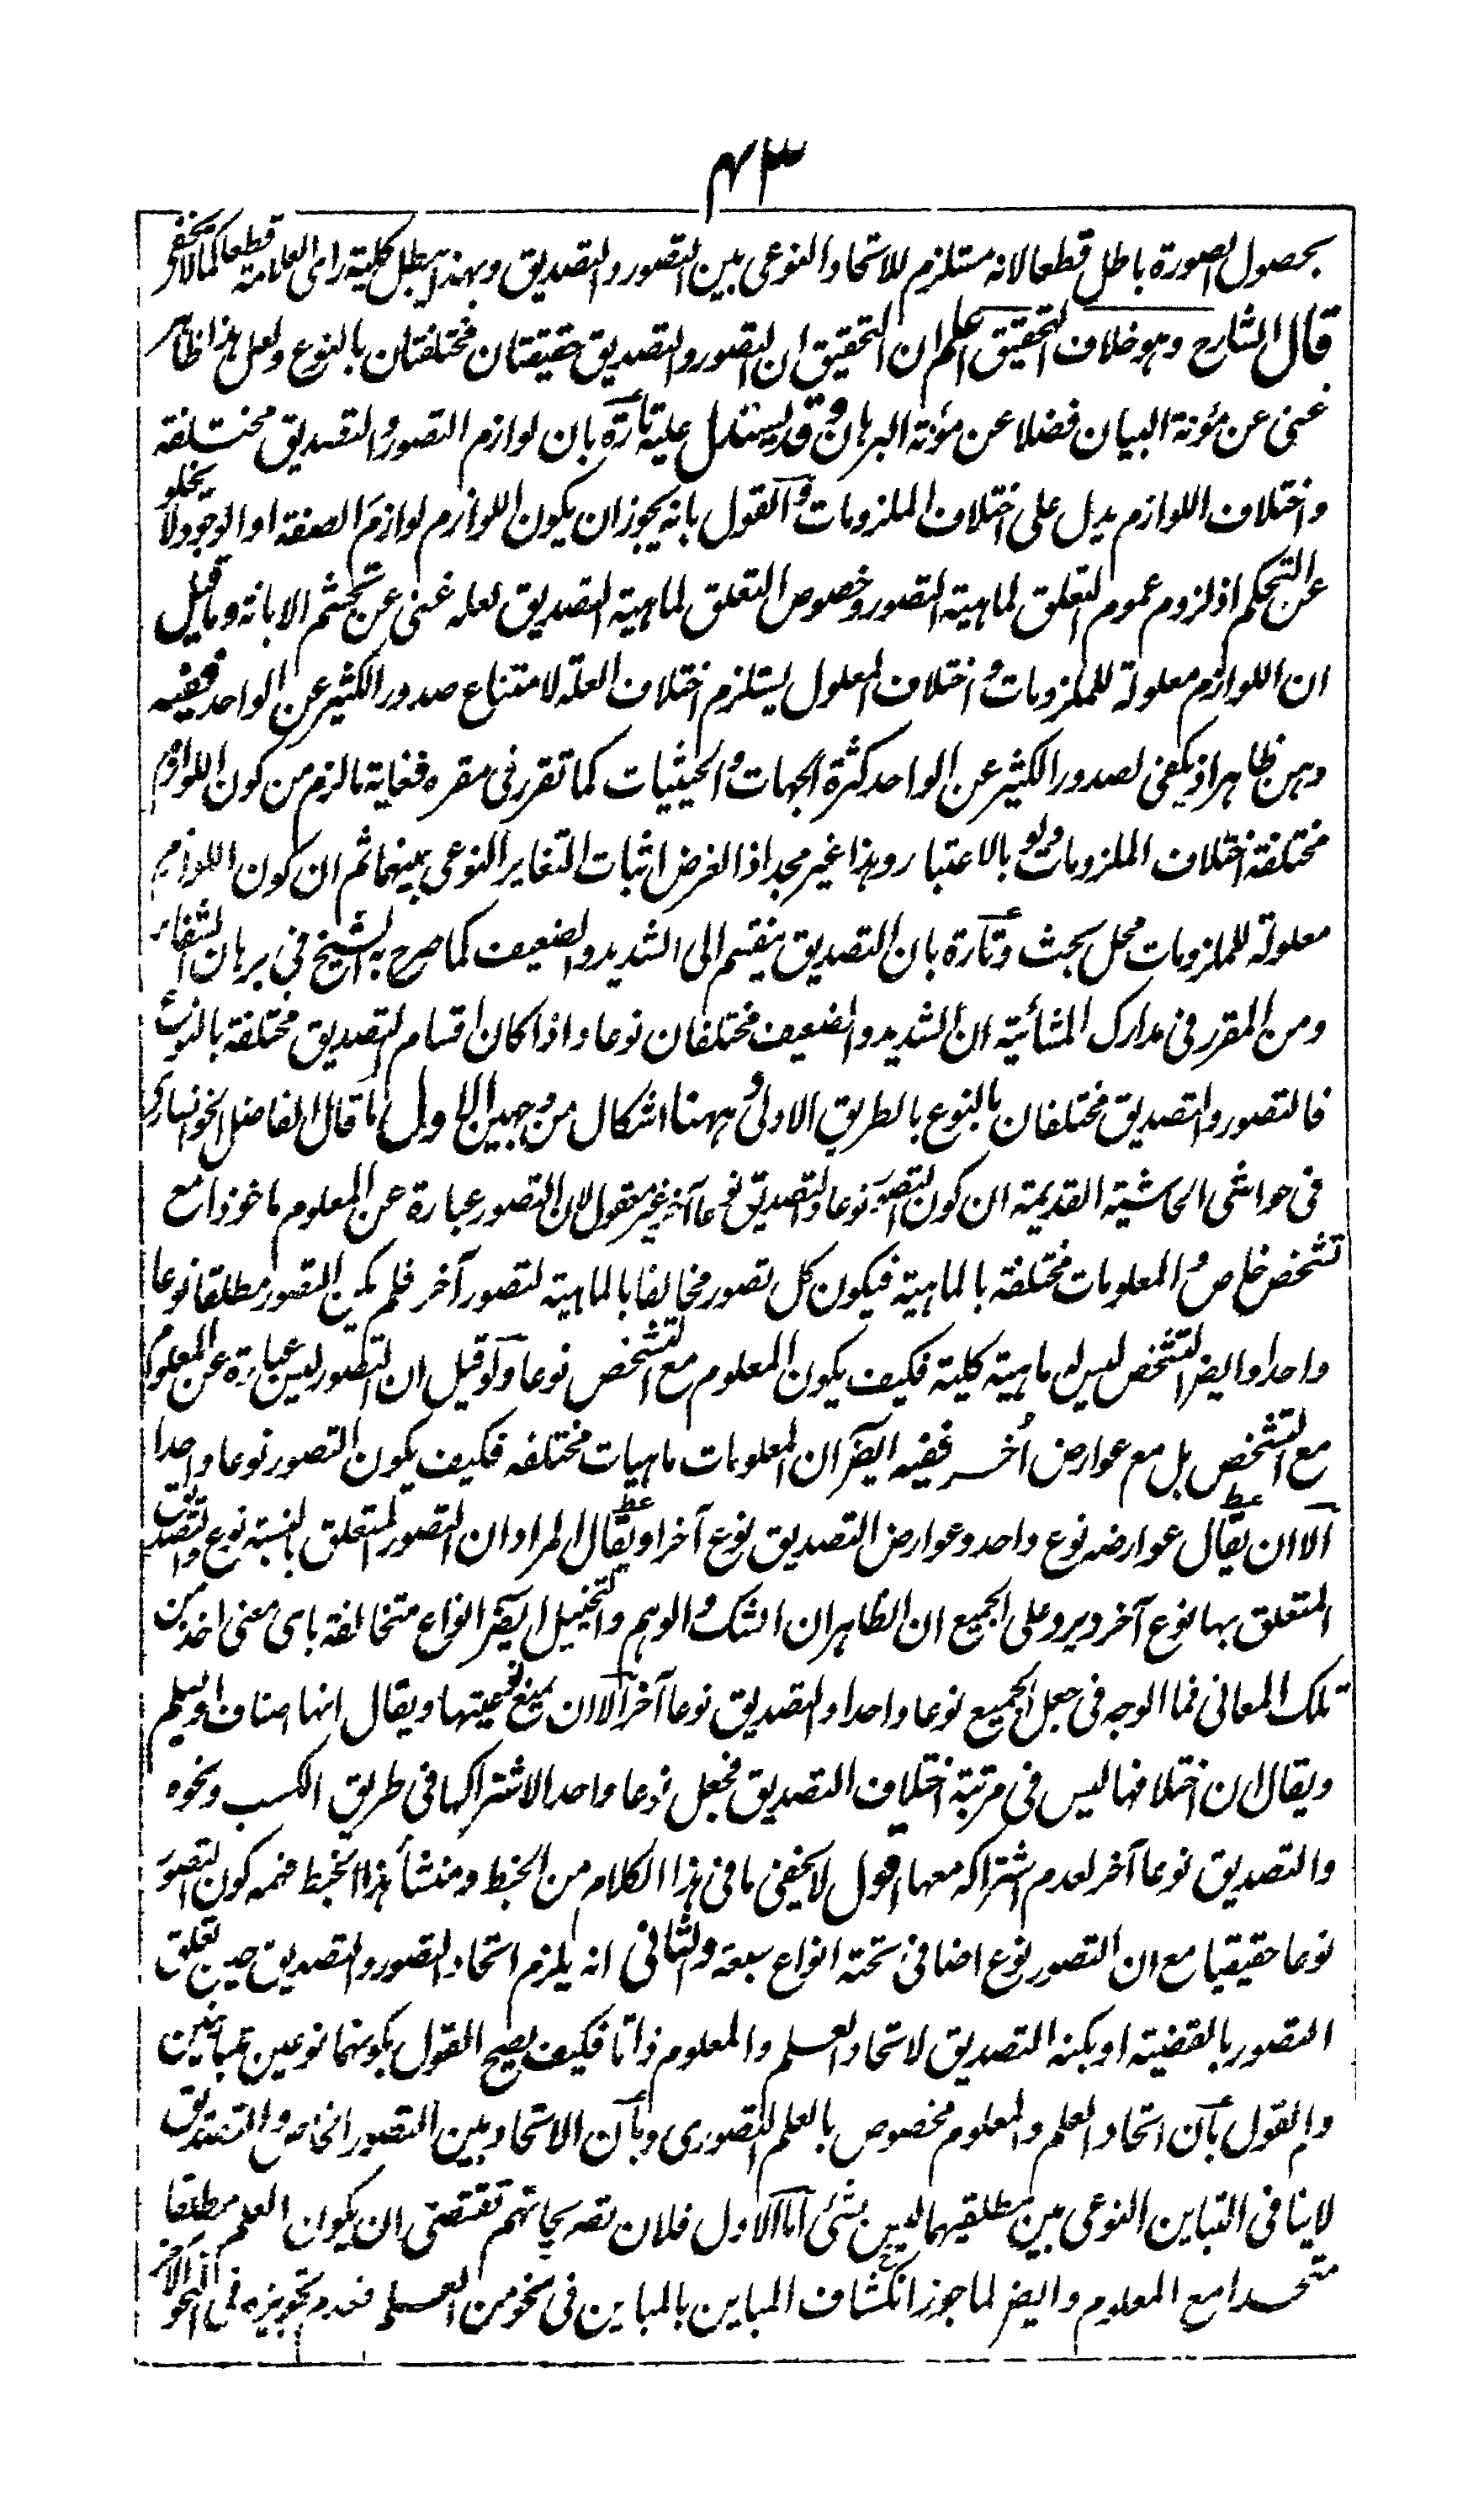 ٤٣
بحصول الصورة باطل قطعا لانه مستلزم للاتحاد النوعى بين التصور والتصديق وبهذا يبطل كلية راى العلامة قطعا كما لا يخفى
قال الشارح وهو خلاف التحقيق اعلم ان التحقيق ان التصور والتصديق حقيقتان مختلفتان بالنوع ولعل هذا ظاهر
غنى عن مؤنة البيان فضلا عن مؤنة البرهان وقد يستدل عليه تارة بان لوازم التصور والتصديق مختلفة
واختلاف اللوازم يدل على اختلاف الملزومات والقول بانه يجوز ان يكون اللوازم لوازم الصفة او الوجود لا يخلو
عن التحكم اذ لزوم عموم التعلق لماهية التصور وخصوص التعلق لماهية التصديق لعله غنى عن تجشم الابانة وما قيل
ان اللوازم معلولة للملزومات واختلاف المعلول يستلزم اختلاف العلة لامتناع صدور الكثير عن الواحد ففيه
وهن ظاهر اذ يكفى لصدور الكثير عن الواحد كثرة الجهات والحيثيات كما تقرر فى مقره فغاية ما لزم من كون اللوازم
مختلفة اختلاف الملزومات ولو بالاعتبار وهذا غير مجد اذ الغرض اثبات التغاير النوعى بينهما ثم ان كون اللوازم
معلولة للملزومات محل بحث وتارة بان التصديق ينقسم الى الشديد والضعيف كما صرح به الشيخ فى برهان الشفاء
ومن المقرر فى مدارك المشائية ان الشديد والضعيف مختلفان نوعا واذا كان اقسام التصديق مختلفة بالنوع
فالتصور والتصديق مختلفان بالنوع بالطريق الاولى وههنا اشكال من وجهين الاول ما قال الفاضل الخوانسارى
فى حواشى الحاشية القديمة ان كون التصور نوعا والتصديق نوعا آخر غير معقول لان التصور عبارة عن المعلوم ماخوذا مع
تشخص خاص والمعلومات مختلفة بالماهية فيكون كل تصور مخالفا بالماهية لتصور آخر فلم يكن التصور مطلقا نوعا
واحدا وايضا التشخص ليس له ماهية كلية فكيف يكون المعلوم مع التشخص نوعا ولو قيل ان التصور ليس عبارة عن المعلوم
مع التشخص بل مع عوارض أخر ففيه ايضا ان المعلومات ماهيات مختلفه فكيف يكون التصور نوعا واحدا
الا ان يقال عوارضه نوع واحد وعوارض التصديق نوع آخر او يقال المراد ان التصور المتعلق بالنسبة نوع والتصديق
المتعلق بها نوع آخر ويرد على الجميع ان الظاهر ان الشك والوهم والتخييل ايضا انواع متخالفة باى معنى اخذ من
تلك المعانى فما الوجه فى جعل الجميع نوعا واحدا والتصديق نوعا آخر الا ان يمنع نوعيتها ويقال انها اصناف او يسلم
ويقال ان اختلافها ليس فى مرتبة اختلاف التصديق فجعل نوعا واحدا لاشتراكها فى طريق الكسب ونحوه
والتصديق نوعا آخر لعدم اشتراكه معها اقول لا يخفى ما فى هذا الكلام من الخبط ومنشأ هذا الخبط فهمه كون التصور
نوعا حقيقيا مع ان التصور نوع اضافى تحته انواع سبعة والثانى انه يلزم اتحاد التصور والتصديق حين تعلق
التصور بالقضية او بكنه التصديق لاتحاد العلم والمعلوم ذاتا فكيف يصح القول بكونهما نوعين متباينين
والقول بأن اتحاد العلم والمعلوم مخصوص بالعلم التصورى وبأن الاتحاد بين التصور الخاص والتصديق
لا ينافى التباين النوعى بين مطلقيهما ليس بشئ اما الاول فلان تصريحاتهم تقتضى ان يكون العلم مطلقا
متحدا مع المعلوم وايضا لما جوز انكشاف المباين بالمباين فى نحو من العلم فعدم تجويزه فى النحو الآخر